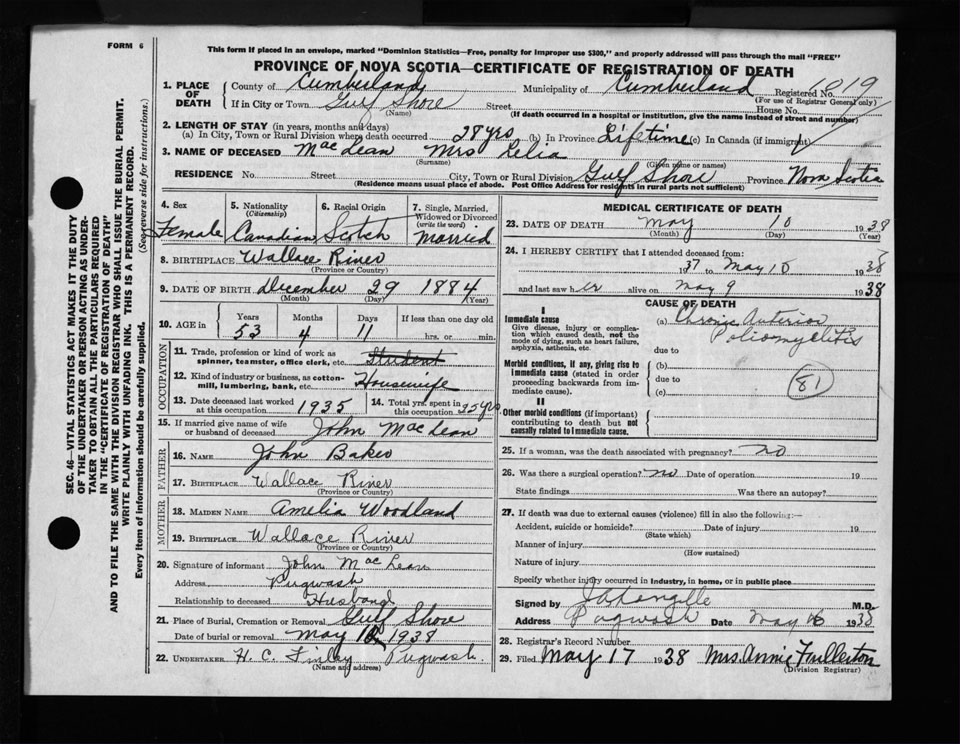 FORM 6
This form if placed in an envelope, marked "Dominion Statistics—Free, penalty for improper use $300," and properly addressed will pass through the mail "FREE"
PROVINCE OF NOVA SCOTIA—CERTIFICATE OF REGISTRATION OF DEATH
SEC. 46—VITAL STATISTICS ACT MAKES IT THE DUTY
OF THE UNDERTAKER OR PERSON ACTING AS UNDER-
TAKER TO OBTAIN ALL THE PARTICULARS REQUIRED
IN THE "CERTIFICATE OF REGISTRATION OF DEATH"
AND TO FILE THE SAME WITH THE DIVISION REGISTRAR WHO SHALL ISSUE THE BURIAL PERMIT.
WRITE PLAINLY WITH UNFADING INK. THIS IS A PERMANENT RECORD.
Every item of information should be carefully supplied. (See reverse side for instructions.)
1. PLACE OF DEATH County of Cumberland Municipality of Cumberland Registered No. 1819
(For use of Registrar General only)
If in City or Town Gulf Shore Street House No.
(Name) (If death occurred in a hospital or institution, give the name instead of street and number)
2. LENGTH OF STAY (in years, months and days)
(a) In City, Town or Rural Division where death occurred 28 yrs (b) In Province Lifetime (c) In Canada (if immigrant)
3. NAME OF DECEASED MacLean Mrs Lelia
(Surname) (Given name or names)
RESIDENCE No. Street City, Town or Rural Division Gulf Shore Province Nova Scotia
(Residence means usual place of abode. Post Office Address for residents in rural parts not sufficient)
4. Sex 5. Nationality (Citizenship) 6. Racial Origin 7. Single, Married, Widowed or Divorced (write the word)
Female Canadian Scotch Married
8. BIRTHPLACE Wallace River
(Province or Country)
9. DATE OF BIRTH December 29 1884
(Month) (Day) (Year)
10. AGE in Years Months Days If less than one day old
53 4 11 hrs. or min.
OCCUPATION
11. Trade, profession or kind of work as spinner, teamster, office clerk, etc. Student
12. Kind of industry or business, as cotton-mill, lumbering, bank, etc. Housewife
13. Date deceased last worked at this occupation 1935 14. Total yrs. spent in this occupation 25 yrs
15. If married give name of wife or husband of deceased John MacLean
FATHER
16. NAME John Baker
17. BIRTHPLACE Wallace River
(Province or Country)
MOTHER
18. MAIDEN NAME Amelia Woodland
19. BIRTHPLACE Wallace River
(Province or Country)
20. Signature of informant John MacLean
Address Pugwash
Relationship to deceased Husband
21. Place of Burial, Cremation or Removal Gulf Shore
Date of burial or removal May 12 1938
22. UNDERTAKER H. C. Finlay Pugwash.
(Name and address)
MEDICAL CERTIFICATE OF DEATH
23. DATE OF DEATH May 10 1938
(Month) (Day) (Year)
24. I HEREBY CERTIFY that I attended deceased from:
1937 to May 10 1938
and last saw her alive on May 9 1938
CAUSE OF DEATH
I
Immediate cause
Give disease, injury or complication which caused death, not the mode of dying, such as heart failure, asphyxia, asthenia, etc.
(a) Chronic Anterior
Poliomyelitis
due to
Morbid conditions, if any, giving rise to immediate cause (stated in order proceeding backwards from immediate cause).
(b)
due to
(c)
81
II
Other morbid conditions (if important) contributing to death but not causally related to immediate cause.
25. If a woman, was the death associated with pregnancy? no
26. Was there a surgical operation? no Date of operation 19
State findings Was there an autopsy?
27. If death was due to external causes (violence) fill in also the following:—
Accident, suicide or homicide? Date of injury 19
(State which)
Manner of injury
(How sustained)
Nature of injury
Specify whether injury occurred in industry, in home, or in public place
Signed by M.D.
Address Pugwash Date May 16 1938
28. Registrar's Record Number
29. Filed May 17 1938 Mrs. Annie Fullerton
(Division Registrar)